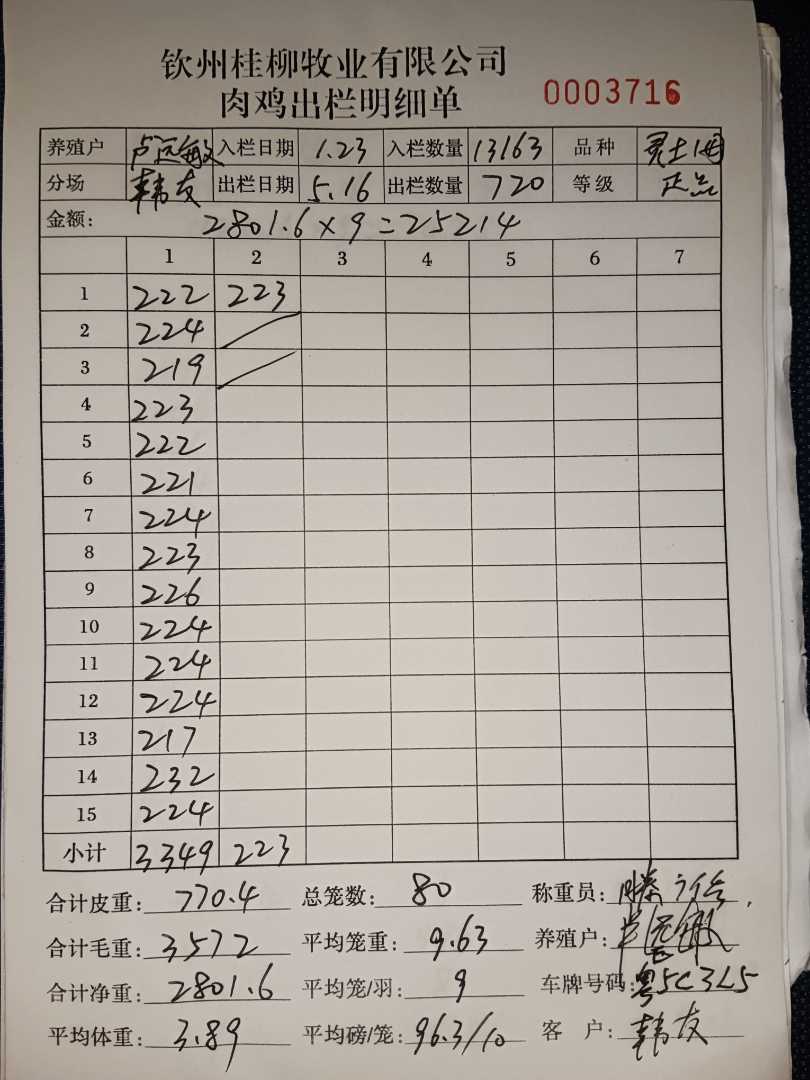 钦州桂柳牧业有限公司
肉鸡出栏明细单 0003716
养殖户 卢远敏 入栏日期 1.23 入栏数量 13163 品种
分场 韩友 出栏日期 5.16 出栏数量 720 等级 正品
金额: 2801.6×9=25214
1 2 3 4 5 6 7
1 222 223
2 224
3 219
4 223
5 222
6 221
7 224
8 223
9 226
10 224
11 224
12 224
13 217
14 232
15 224
小计 3349 223
合计皮重: 770.4 总笼数: 80 称重员:
合计毛重: 3572 平均笼重: 9.63 养殖户: 卢远敏
合计净重: 2801.6 平均笼/羽: 9 车牌号码: 粤5C3L5
平均体重: 3.89 平均磅/笼: 96.3/10 客户: 韩友